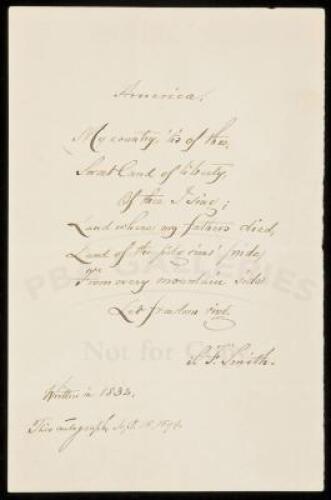 America.
My country, 'tis of thee,
Sweet Land of liberty,
Of thee I sing;
Land where my fathers died,
Land of the pilgrims' pride,
From every mountain side
Let freedom ring.
S. F. Smith.
Written in 1832.
This autograph, Sept.
PBA GALLERIES
Not for